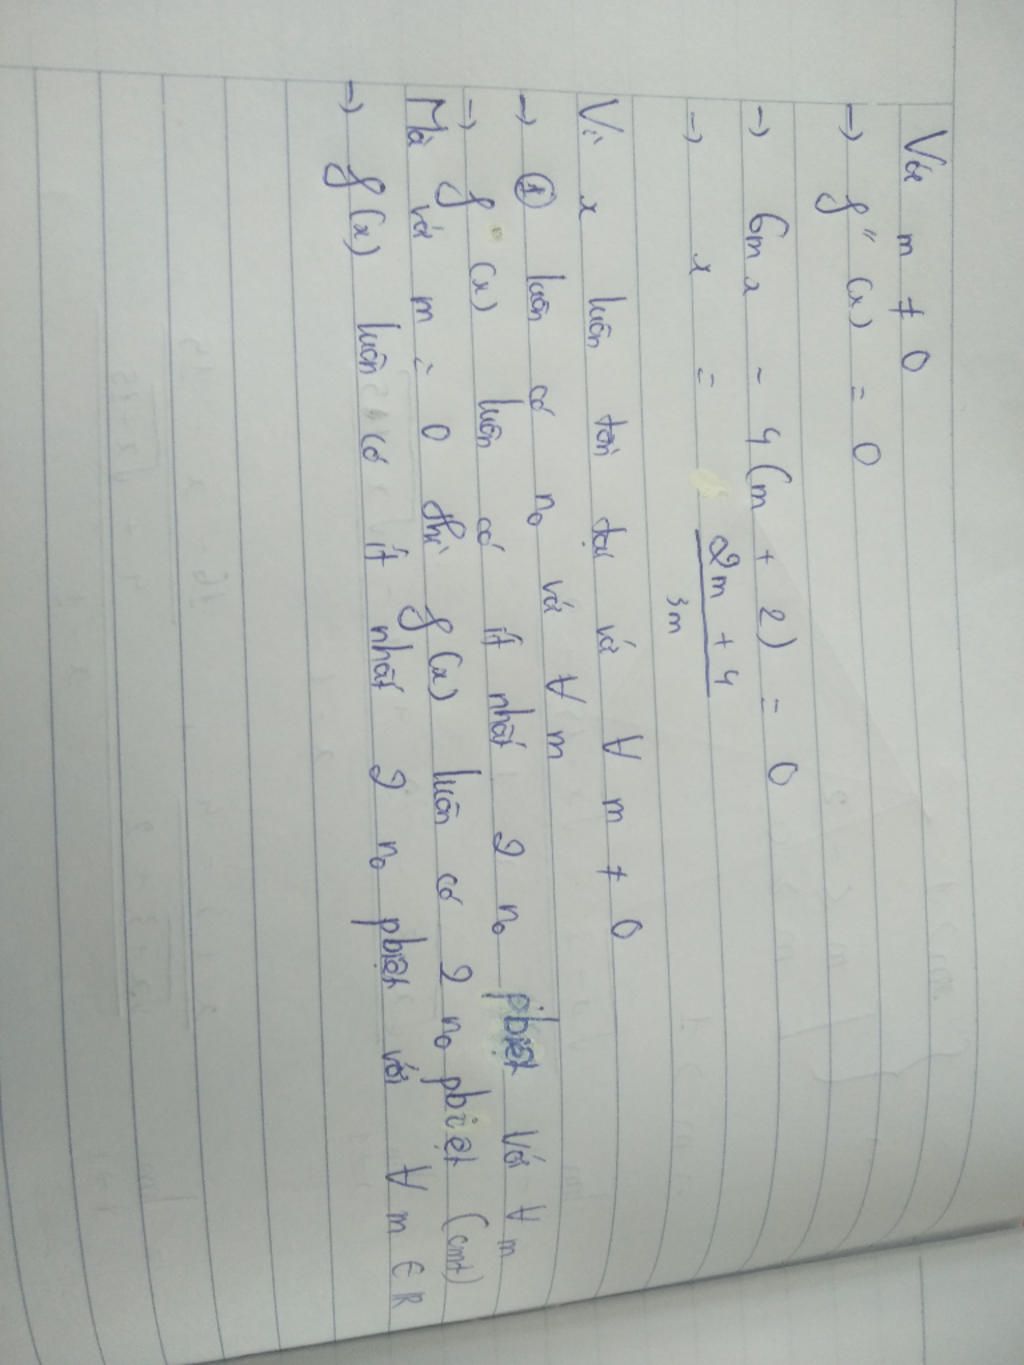 Với m ≠ 0
→ f''(x) = 0
→ 6mx - 4(m + 2) = 0
→ x = (2m + 4)/3m
Vì x luôn tồn tại với ∀ m ≠ 0
→ (1) luôn có n0 với ∀ m
→ f(x) luôn có ít nhất 2 n0 pbiệt với ∀ m
Mà với m = 0 thì f(x) luôn có 2 n0 pbiệt (cmt)
→ f(x) luôn có ít nhất 2 n0 pbiệt với ∀ m ∈ R